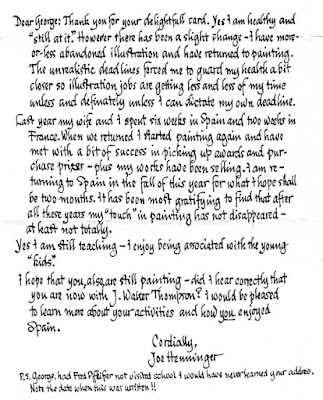 Dear George: Thank you for your delightfull card. Yes I am healthy and
"still at it." However there has been a slight change - I have more-
or-less abandoned illustration and have returned to painting.
The unrealistic deadlines forced me to guard my health a bit
closer so illustration jobs are getting less and less of my time
unless and definately unless I can dictate my own deadline.
Last year my wife and I spent six weeks in Spain and two weeks in
France. When we returned I started painting again and have
met with a bit of success in picking up awards and pur-
chase prizes - plus my works have been selling. I am re-
turning to Spain in the fall of this year for what I hope shall
be two months. It has been most gratifying to find that after
all these years my "touch" in painting has not disappeared -
at least not totally.
Yes I am still teaching - I enjoy being associated with the young
"kids."
I hope that you, also, are still painting - did I hear correctly that
you are now with J. Walter Thompson? I would be pleased
to learn more about your activities and how you enjoyed
Spain.
Cordially,
Joe Henninger
P.S. George, had Fred Pfeiffer not visited school I would have never learned your address.
Note the date when this was written!!